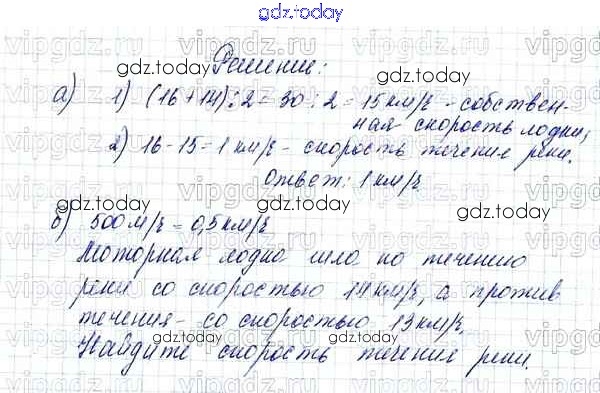 gdz.today
vipgdz.ru vipgdz.ru vipgdz.ru vipgdz.ru
Решение:
gdz.today gdz.today
а) 1) (16+14):2=30:2=15 км/ч - собствен-
ная скорость лодки;
2) 16-15=1 км/ч - скорость течения реки.
gdz.today gdz.today
Ответ: 1 км/ч
gdz.today gdz.today
б) 500 м/ч = 0,5 км/ч
Моторная лодка шла по течению
реки со скоростью 14 км/ч, а против
gdz.today gdz.today
течения - со скоростью 13 км/ч.
Найдите скорость течения реки.
gdz.today gdz.today